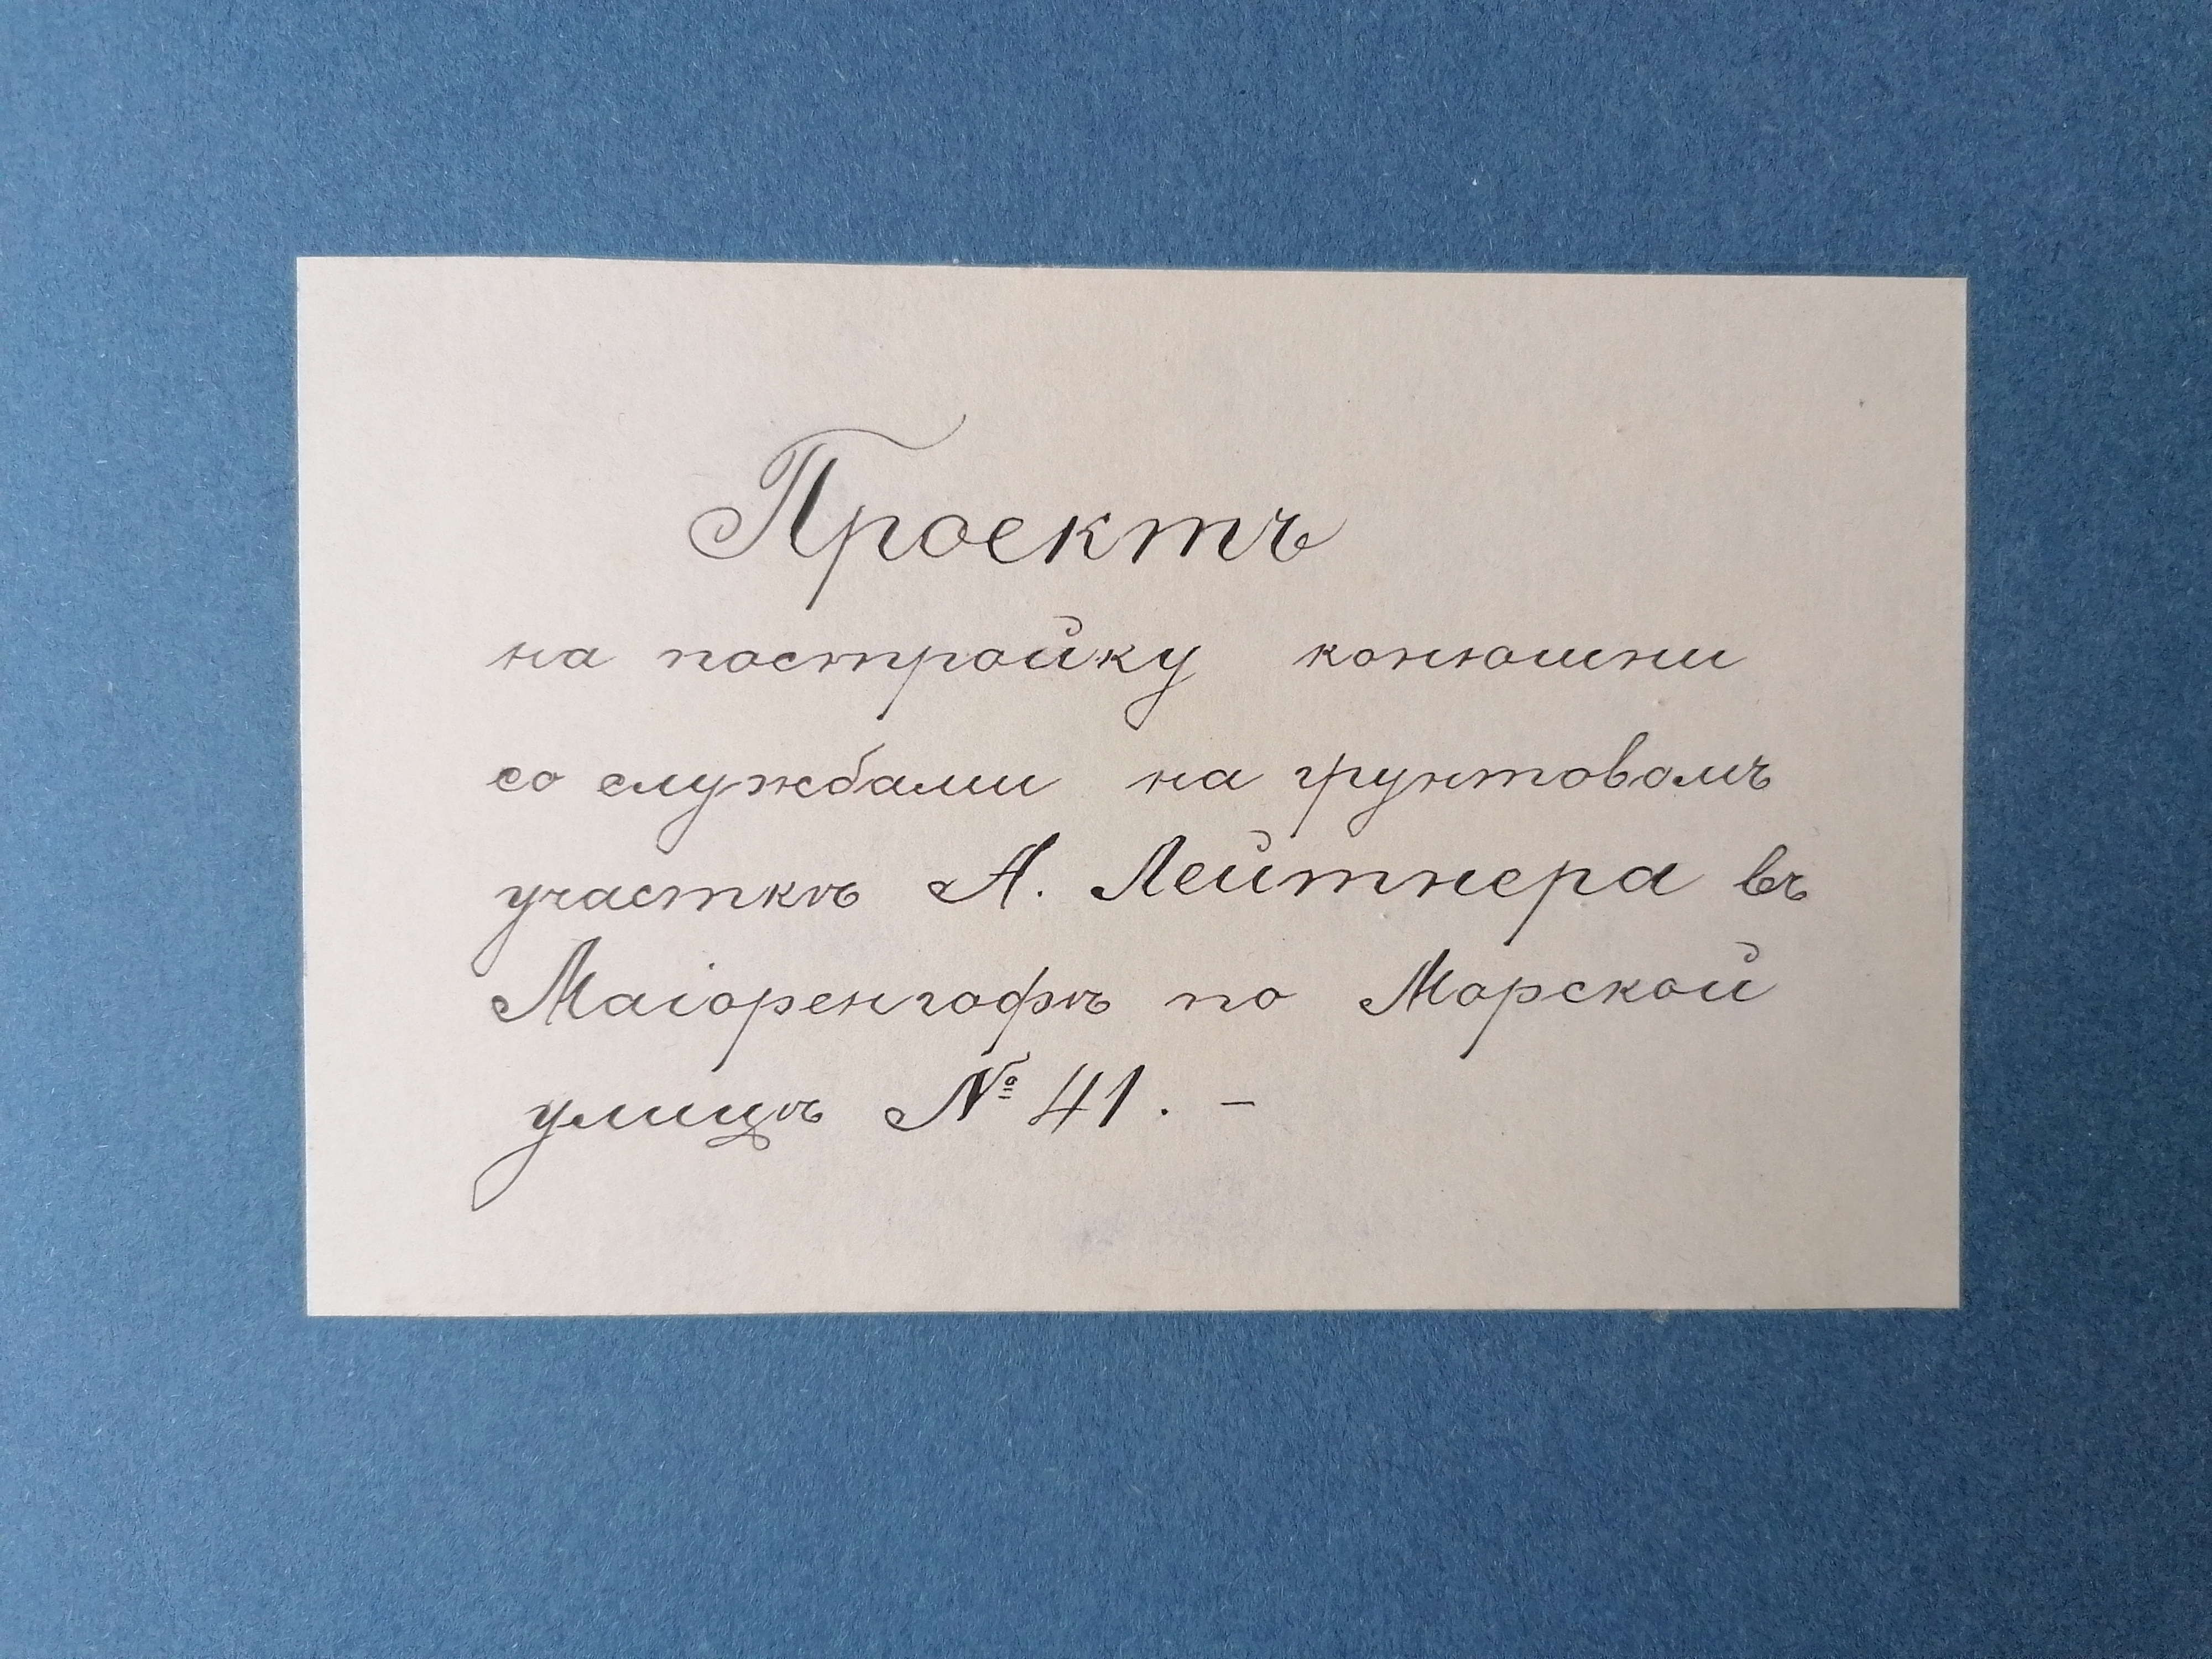 Проектъ
на постройку конюшни
со службами на грунтовомъ
участкѣ А. Лейтнера въ
Маіоренгофѣ по Морской
улицѣ № 41. –